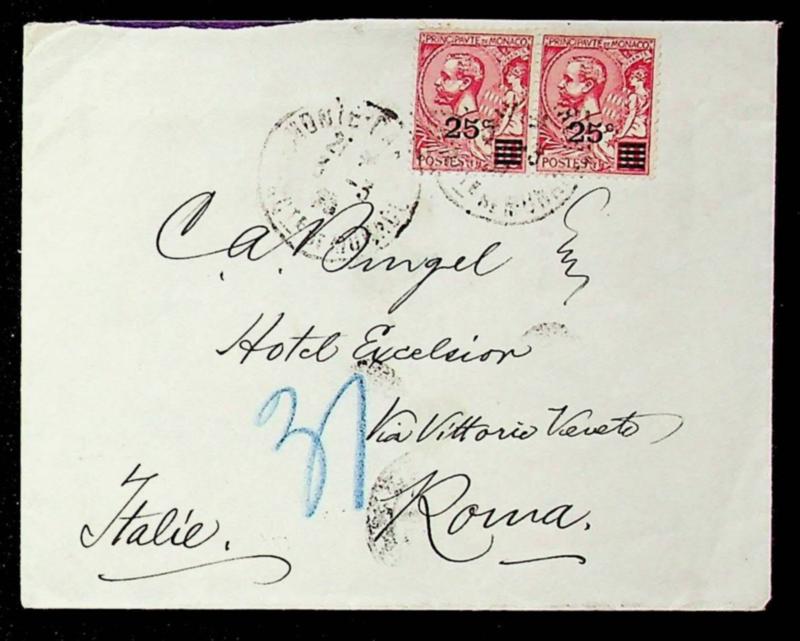 PRINCIPAUTÉ DE MONACO PRINCIPAUTÉ DE MONACO
25c 25c
POSTES POSTES
MONTE
21
C.A. Bingel Esq
Hotel Excelsior
Via Vittorio Veneto
Roma.
Italie.